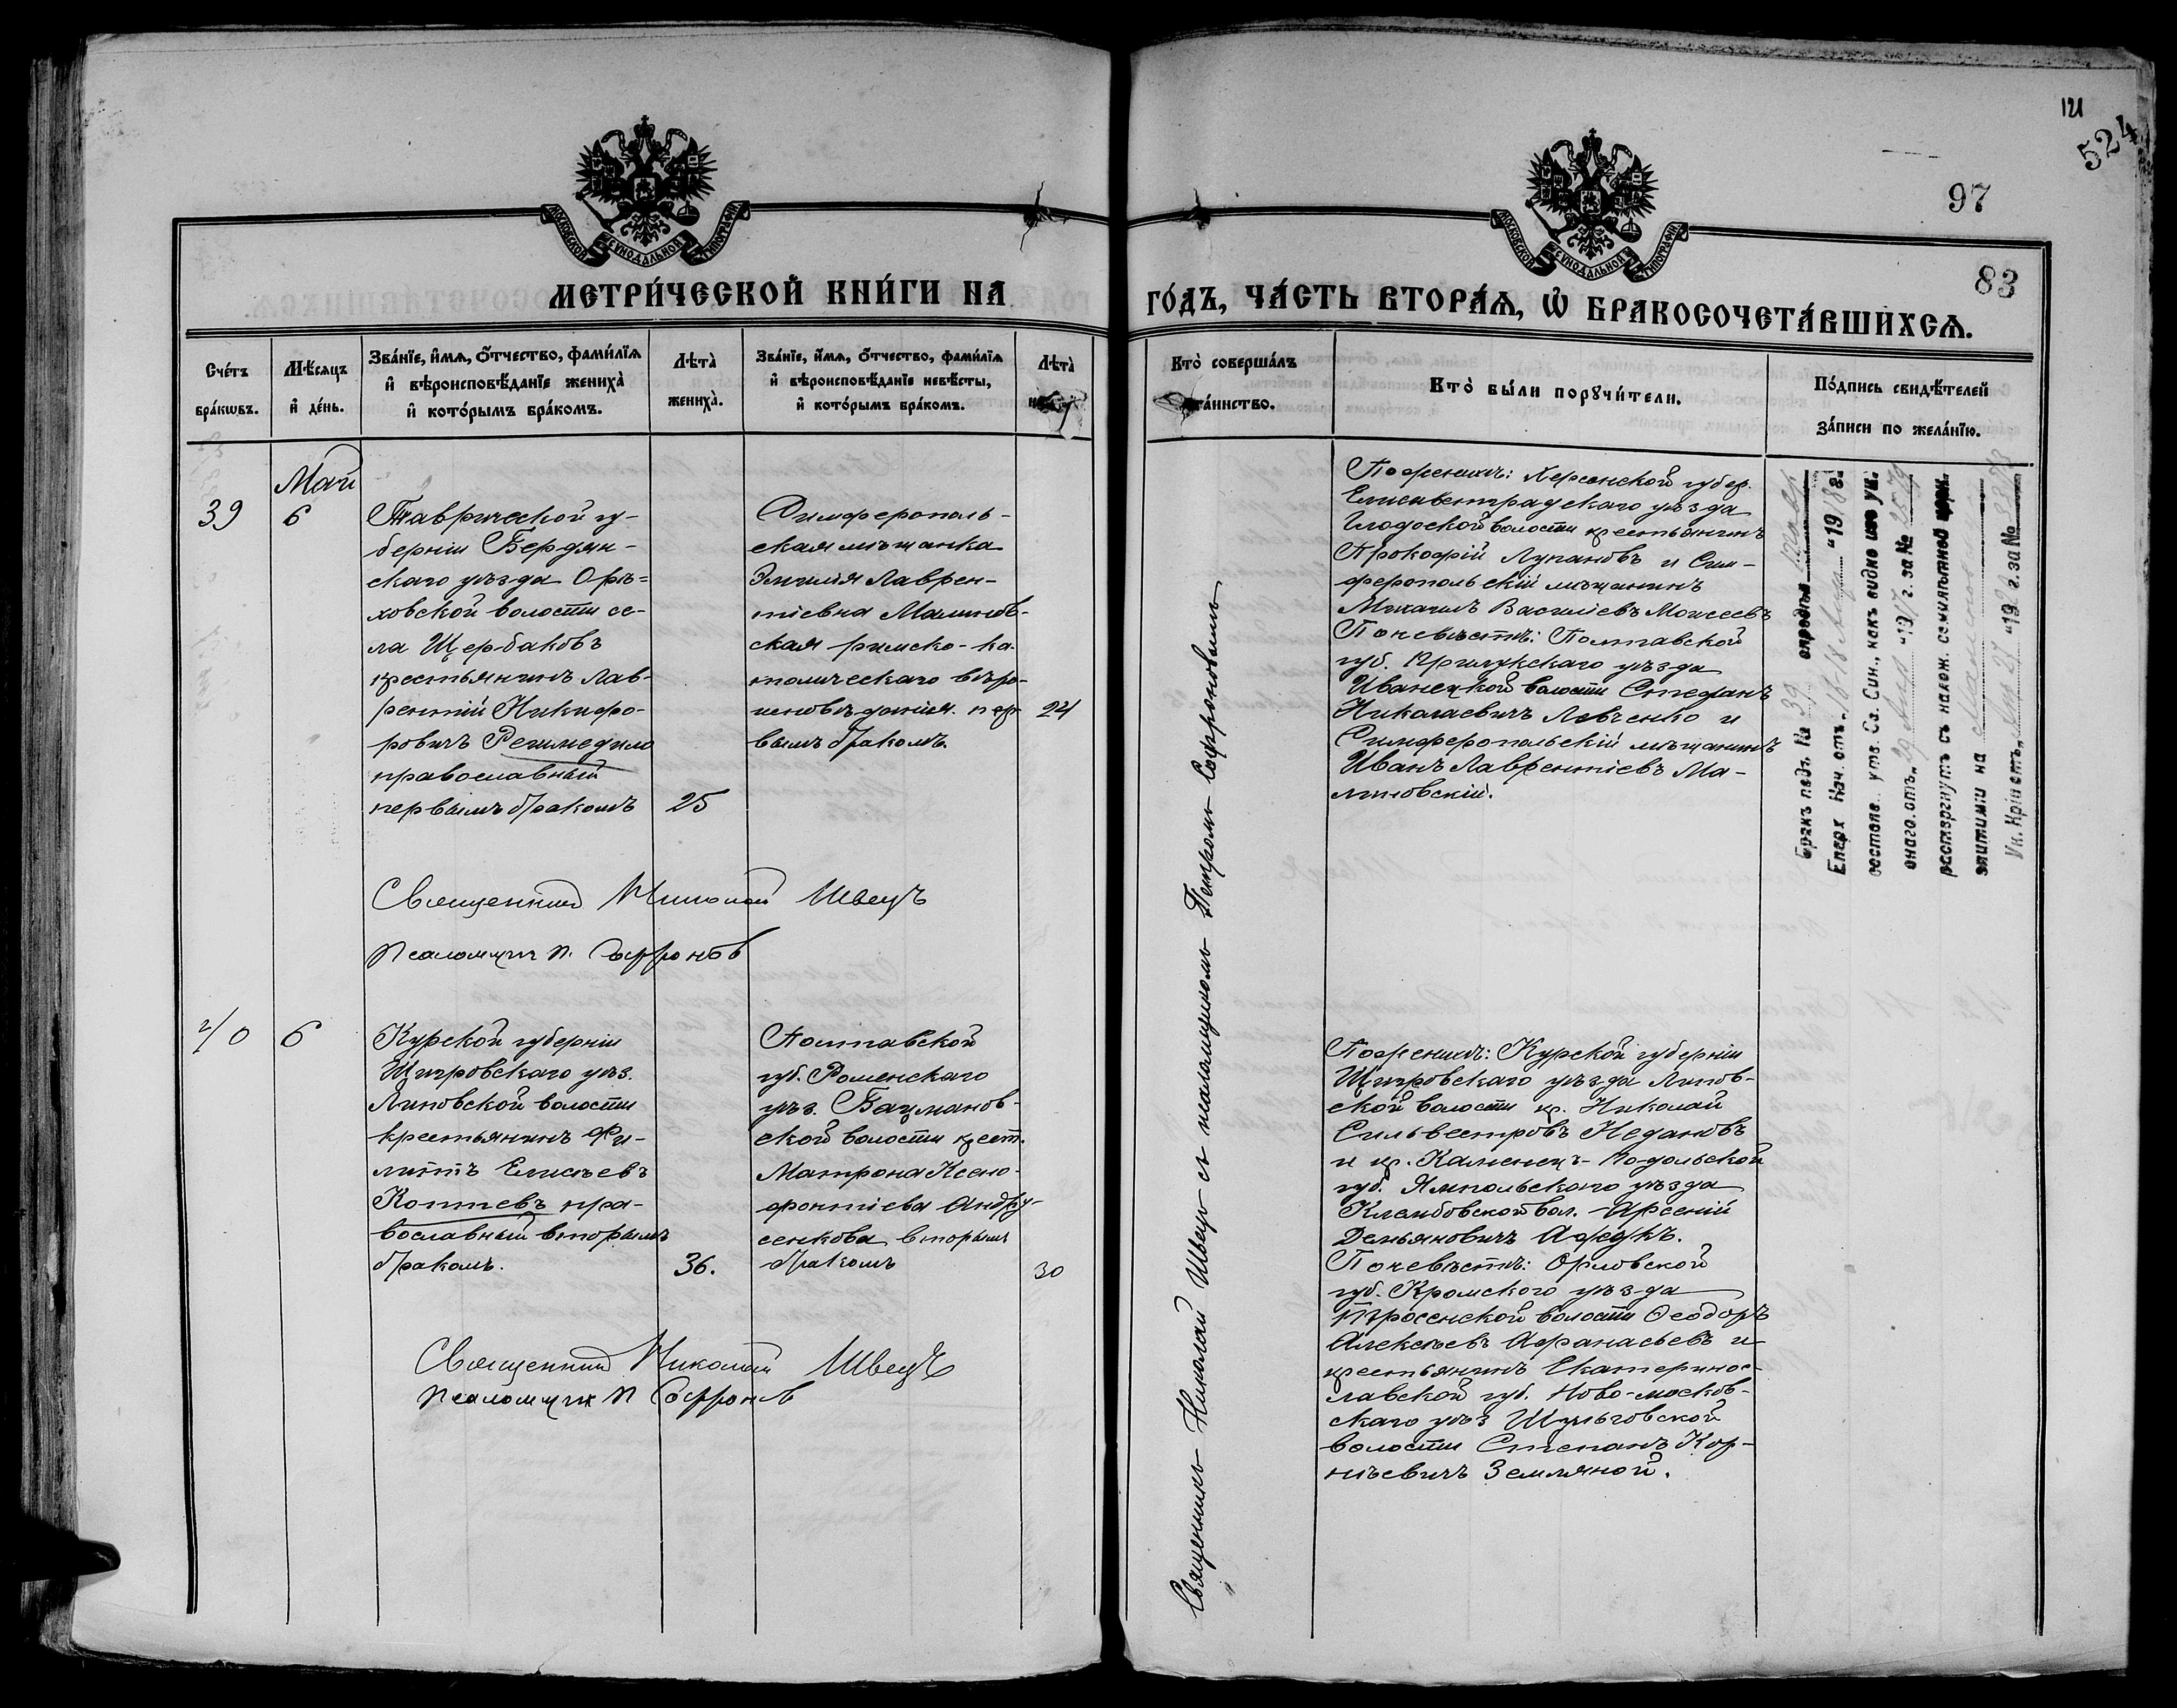 121
524
97
83
МОСКОВСКОЙ СУНОДАЛЬНОЙ ТИПОГРАФІИ
МОСКОВСКОЙ СУНОДАЛЬНОЙ ТИПОГРАФІИ
МЕТРИ́ЧЕСКОЙ КНИ́ГИ НА
ГО́ДЪ, ЧА́СТЬ ВТОРА́Ѧ, Ѡ҆ БРАКОСОЧЕТА́ВШИХСѦ.
Сче́тъ
бра́кѡвъ.
Мѣ́сяцъ
и҆ де́нь.
Зва́нїе, и҆́мѧ, ѻ҆́тчество, фами́лїѧ
и҆ вѣроисповѣ́данїе жениха̀
и҆ кото́рымъ бра́комъ.
Лѣта̀
жениха̀.
Зва́нїе, и҆́мѧ, ѻ҆́тчество, фами́лїѧ
и҆ вѣроисповѣ́данїе невѣ́сты,
и҆ кото́рымъ бра́комъ.
Лѣта̀
Кто̀ соверша́лъ
та́инство.
Кто̀ бы́ли порꙋчи́тели.
По́дпись свидѣ́телей
за́писи по жела́нїю.
Май
39
6
Таврической гу-
берніи Бердян-
скаго уѣзда Орѣ=
ховской волости се-
ла Щербаковъ
крестьянинъ Лав-
рентій Никифо-
ровичъ
православный
первымъ бракомъ
25
Симферополь-
ская мѣщанка
Эмилія Лаврен-
тіевна Малинов-
ская римско-ка-
толическаго вѣро-
исповѣданія. пер-
вымъ бракомъ.
24
По женихѣ: Херсонской губер.
Елисаветградскаго уѣзда
Глодоской волости крестьянинъ
Прокофій Лупановъ и Сим-
феропольскій мѣщанинъ
Михаилъ Васильевъ Моисеевъ
По невѣстѣ: Полтавской
губ. Прилукскаго уѣзда
Иваницкой волости Стефанъ
Николаевичъ Левченко и
Симферопольскій мѣщанинъ
Иванъ Лаврентіевъ Ма-
линовскій.
Бракъ подъ № 39 опредѣл.
Епарх Нач. отъ „ “ 19 18 г.
состояв. утв. Св. Син., какъ видно изъ ук.
онаго отъ „ “ 19 г. за №
расторгнутъ съ налож. семилѣтней церк.
эпитиміи на
Ук. Крі отъ „ 27 “ 19 г. за №
Священникъ Николай Швецъ
Псаломщик П. Софронов
40
6
Курской губерніи
Щигровскаго уѣз.
Липовской волости
крестьянинъ Фи-
липпъ Елисѣевъ
Коптевъ пра-
вославный вторымъ
бракомъ.
36.
Полтавской
губ. Роменскаго
уѣз. Бацманов-
ской волости крест.
Матрона Ксено-
фонтіева Андру-
сенкова вторымъ
бракомъ
30
По женихѣ: Курской губерніи
Щигровскаго уѣзда Липов-
ской волости кр. Николай
Сильвестровъ Недановъ
и кр. Каменецъ-Подольской
губ. Ямпольскаго уѣзда
Клембовской вол. Арсеній
Демьяновичъ
По невѣстѣ: Орловской
губ. Кромскаго уѣзда
Тросенской волости Ѳеодоръ
Алексѣевъ Афанасьевъ и
крестьянинъ Екатеринос-
лавской губ. Ново-москов-
скаго уѣз Шульговской
волости Степанъ Кор-
нѣевичъ Земляной.
Священникъ Николай Швецъ
Псаломщик П Софронов
Священникъ Николай Швецъ съ псаломщикомъ Петромъ Софроновымъ